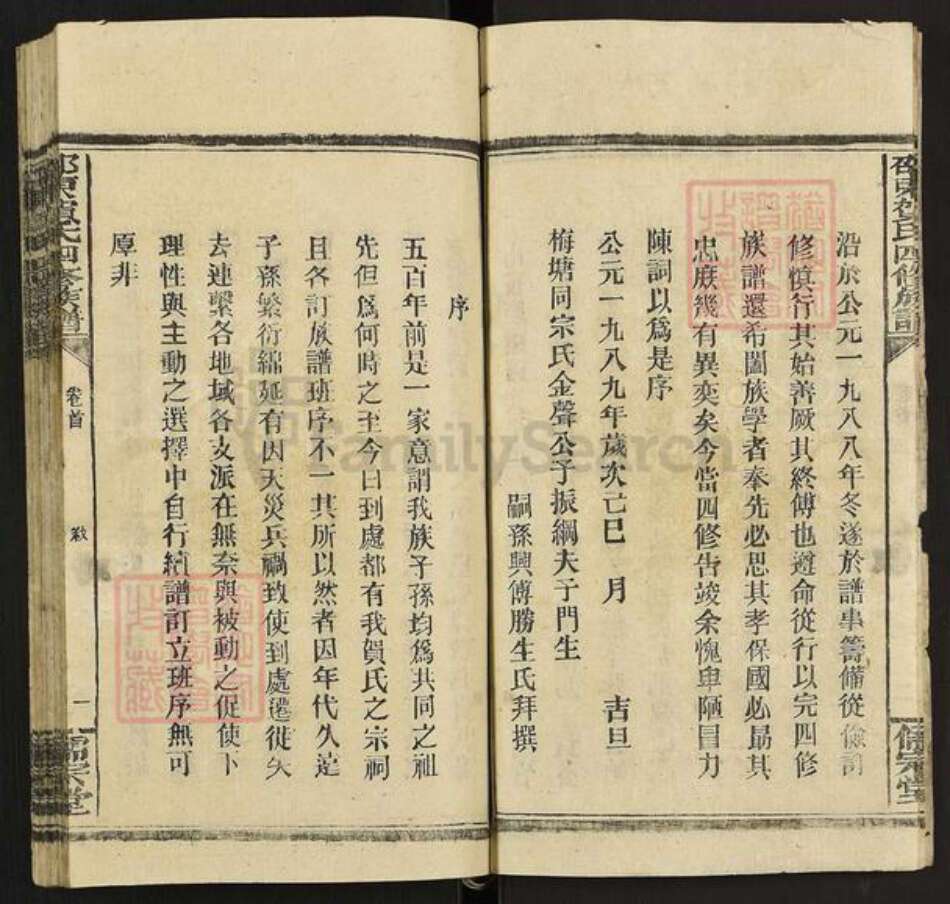 沿於公元一九八八年冬遂於譜事籌備從儉司
修慎行其始善厥其終傅也遵命從行以完四修
族譜還希闔族學者奉先必思其孝保國必勗其
忠庶幾有異奕矣今當四修告竣余愧卑陋冒力
陳詞以為是序
公元一九八九年歲次己巳 月 吉旦
梅塘同宗氏金聲公子振綱夫子門生
嗣孫興傅勝生氏拜撰
序
五百年前是一家意謂我族子孫均為共同之祖
先但爲何時之至今日到處都有我賀氏之宗祠
且各訂族譜班序不一其所以然者因年代久遠
子孫繁衍綿延有因天災兵禍致使到處遷徙失
去連繫各地域各支派在無奈與被動之促使下
理性與主動之選擇中自行續譜訂立班序無可
厚非
邵東賀氏四修族譜
卷首
一
儒宗堂
邵東賀氏四修族譜
儒宗堂
FamilySearch